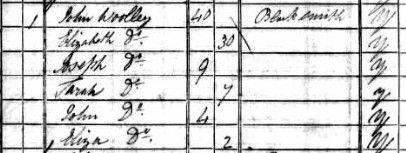 1 John Woolley 40 Blacksmith y
Elizabeth Do. 30 y
Joseph Do. 9 y
Sarah Do. 7 y
John Do. 4 y
Eliza Do. 2 y